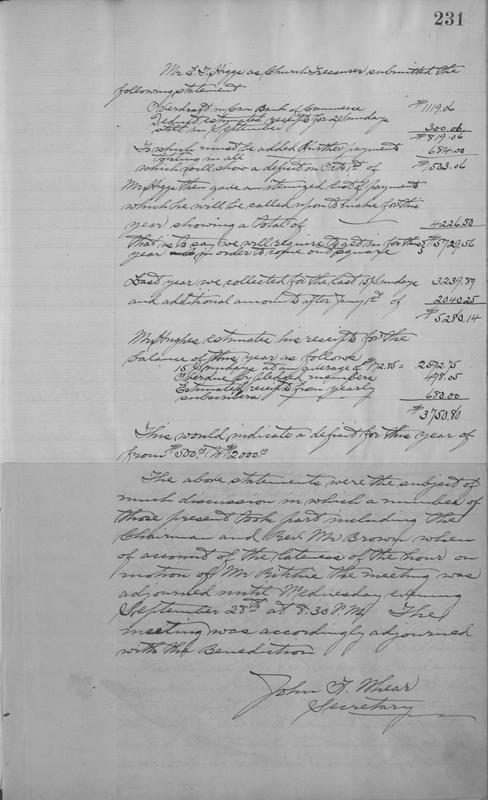 231
Mr E. T. Higgs as Church Treasurer submitted the
following statement
Overdraft in Can Bank of Commerce $1119.06
Deduct estimated receipts for 2 Sundays
still in September 300.00
$819.06
To which must be added further payments 684.00
totaling in all
which will show a deficit on Oct 1st of $1503.06
Mr Higgs then gave an itemized list of payments
which he will be called upon to make for this
year showing a total of 4226.50
That is to say we will require to get in for this $5729.56
year in order to come out square
Last year we collected for the last 15 Sundays 3239.89
and additional amounts after Jany 1st of 2040.25
$5280.14
Mr Hughes estimates his receipts for the
balance of this year as follows
15 Sundays at an average of $172.85 = 2592.75
Overdue by pledged members 478.05
Estimated receipts from yearly
subscribers 680.00
$3750.80
This would indicate a deficit for this year of
from $500.00 to $2000.00
The above statements were the subject of
much discussion in which a number of
those present took part including the
Chairman and Rev Mr Brown when
of account of the lateness of the hour on
motion of Mr Ritchie the meeting was
adjourned until Wednesday evening
September 28th at 8:30 P.M. The
meeting was accordingly adjourned
with the Benediction
John T. Whear
Secretary